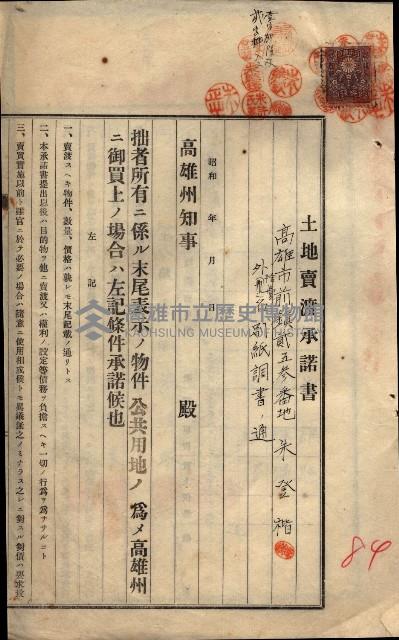 土地賣渡承諾書
高雄市前鎮貳五參番地 朱登楷
外 別紙調書ノ通
昭和 年 月 日
高雄州知事 殿
拙者所有ニ係ル末尾表示ノ物件 公共用地ノ 爲メ高雄州
ニ御買上ノ場合ハ左記條件承諾候也
左記
一、賣渡スヘキ物件、數量、價格ハ總レモ末尾記載ノ通リトス
二、本承諾書提出以後ハ目的物ヲ他ニ賣渡又ハ權利ノ設定等債務ヲ負擔スヘキ一切ノ行爲ヲ爲サザルコト
三、賣買實施以前ト雖官ニ於テ必要ノ場合ハ隨意ニ使用相成候トモ異議無之ノミナラス之レニ對スル對價ハ要求致
84
高雄市立歷史博物館
KAOHSIUNG MUSEUM OF HISTORY